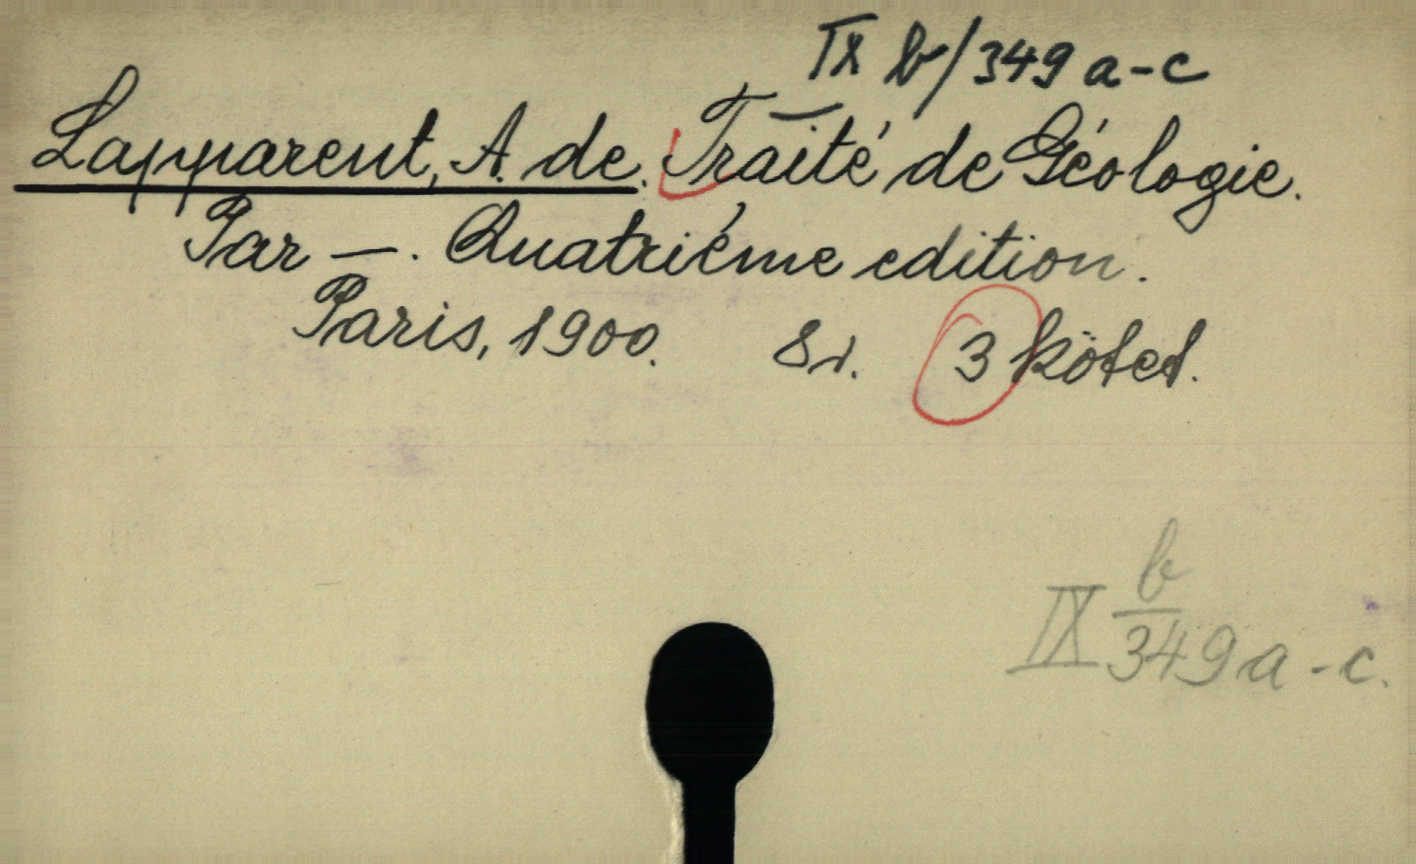 IX b/349 a-c
Lapparent, A. de. Traité de Géologie.
Par —. Quatriéme edition.
Paris, 1900. 8r. 3 kötet.
IX b/349 a-c.